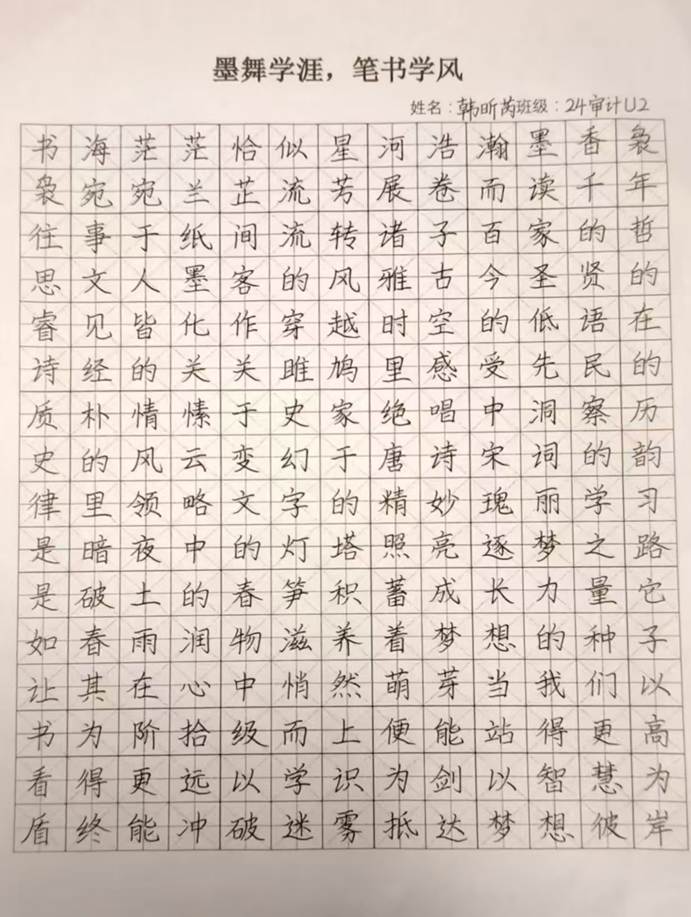 墨舞学涯，笔书学风
姓名：韩昕芮班级：24审计U2
书海茫茫恰似星河浩瀚墨香袅
袅宛宛兰芷流芳展卷而读千年
往事于纸间流转诸子百家的哲
思文人墨客的风雅古今圣贤的
睿见皆化作穿越时空的低语在
诗经的关关雎鸠里感受先民的
质朴情愫于史家绝唱中洞察历
史的风云变幻于唐诗宋词的韵
律里领略文字的精妙瑰丽学习
是暗夜中的灯塔照亮逐梦之路
是破土的春笋积蓄成长力量它
如春雨润物滋养着梦想的种子
让其在心中悄然萌芽当我们以
书为阶拾级而上便能站得更高
看得更远以学识为剑以智慧为
盾终能冲破迷雾抵达梦想彼岸